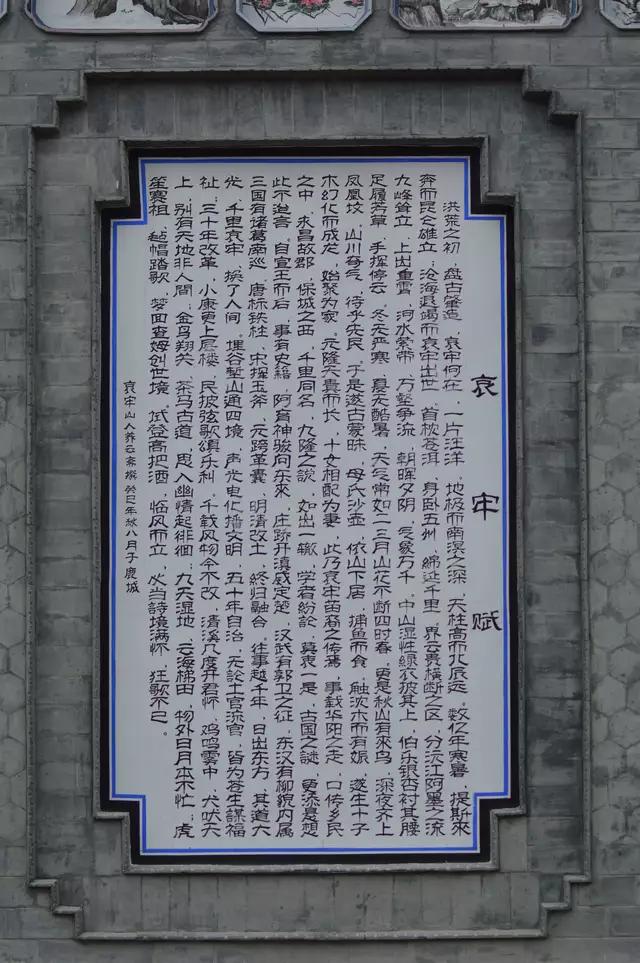 哀牢赋
洪荒之初，盘古肇造，哀牢何在，一片汪洋，地极而南溟之深，天柱高而北辰远。数亿年寒暑，提斯來
奔而昆仑雄立；沧海退竭而哀牢出世。首枕苍洱，身卧五州，綿延千里。界云贵横断之区，分沅江阿墨之流
九峰耸立，上出重霄，河水萦带，万壑争流，朝晖夕阴，气象万千。中山湿性绿衣披其上，伯乐银杏衬其腰
足履芳草，手挥停云，冬无严寒，夏无酷暑，天气常如二三月山花不断四时春，更是秋山有來鸟，深夜齐上
凤凰坟，山川奇气，待乎先民。于是遂古蒙昧，母氏沙壶，依山下居，捕鱼而食，触沈木而有娠，遂生十子
木幻化而成龙，始聚为家。元隆天贵而长，十女相配为妻，此乃哀牢苗裔之传焉，事载华阳之志，口传乡民
之中，永昌故郡，保城之西，千里同名，九隆之說，如出一辙，学者纷論，莫衷一是，古国之謎，更添是想
此不迨言，自宣王而后，事有史籍，阿育神骏向东來，庄蹻开滇威定楚，汉武有郭卫之征，东汉有柳貌内属
三国有諸葛南巡，唐标铁柱，宋挥玉斧，元跨革囊，明清改土，终归融合。往事越千年，日出东方，其道大
光，千里哀牢，换了人间。埋谷堑山通四境，声光电化播文明，五十年自治，无論土官流官，皆为苍生謀福
祉；三十年改革，小康更上层楼，民披弦歌颂乐利。千载风物今不改，清溪几度开君怀，鸡鸣雾中，犬吠天
上，别有天地非人間；金乌翔关，茶马古道，思入幽情起徘徊；九天湿地，云海梯田，物外日月本不忙；虎
笙赛祖，毡帽踏歌，梦回查姆创世境，试登高把酒，临风而立，必当詩境满怀，狂歌不已。
哀牢山人 云斋撰 癸巳年秋八月于鹿城